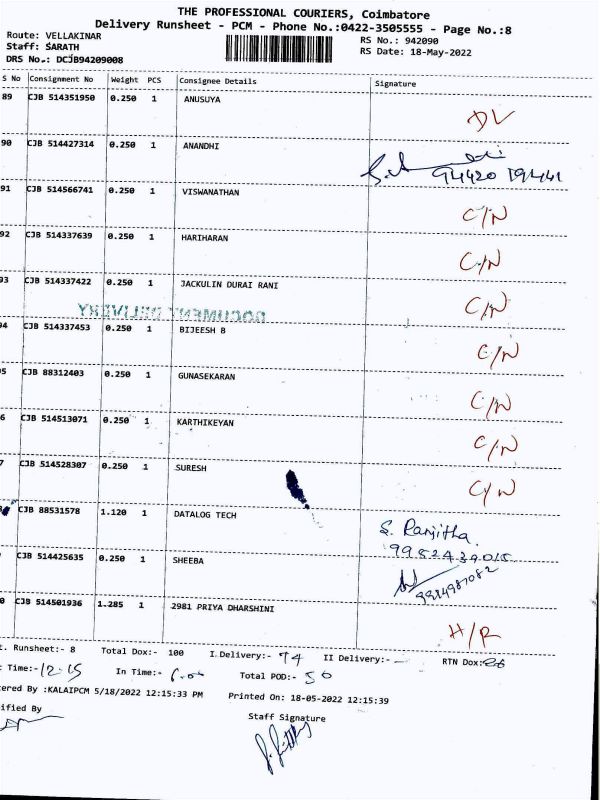 THE PROFESSIONAL COURIERS, Coimbatore
Delivery Runsheet - PCM - Phone No.:0422-3505555 - Page No.:8
Route: VELLAKINAR RS No.: 942090
Staff: SARATH RS Date: 18-May-2022
DRS No.: DCJB94209008
S No Consignment No Weight PCS Consignee Details Signature
89 CJB 514351950 0.250 1 ANUSUYA DV
90 CJB 514427314 0.250 1 ANANDHI
94420 19441
91 CJB 514566741 0.250 1 VISWANATHAN C/N
92 CJB 514337639 0.250 1 HARIHARAN C/N
93 CJB 514337422 0.250 1 JACKULIN DURAI RANI C/N
DOCUMENT DELIVERY
94 CJB 514337453 0.250 1 BIJEESH B C/N
5 CJB 88312403 0.250 1 GUNASEKARAN C/N
6 CJB 514513071 0.250 1 KARTHIKEYAN C/N
7 CJB 514528307 0.250 1 SURESH C/N
CJB 88531578 1.120 1 DATALOG TECH S. Ranjitha
9952439015
CJB 514425635 0.250 1 SHEEBA
9994987082
0 CJB 514501936 1.285 1 2981 PRIYA DHARSHINI H/R
t. Runsheet:- 8 Total Dox:- 100 I.Delivery:- 74 II Delivery:- - RTN Dox:- 26
Time:- 12.15 In Time:- 6.00 Total POD:- 50
tered By :KALAIPCM 5/18/2022 12:15:33 PM Printed On: 18-05-2022 12:15:39
ified By Staff Signature